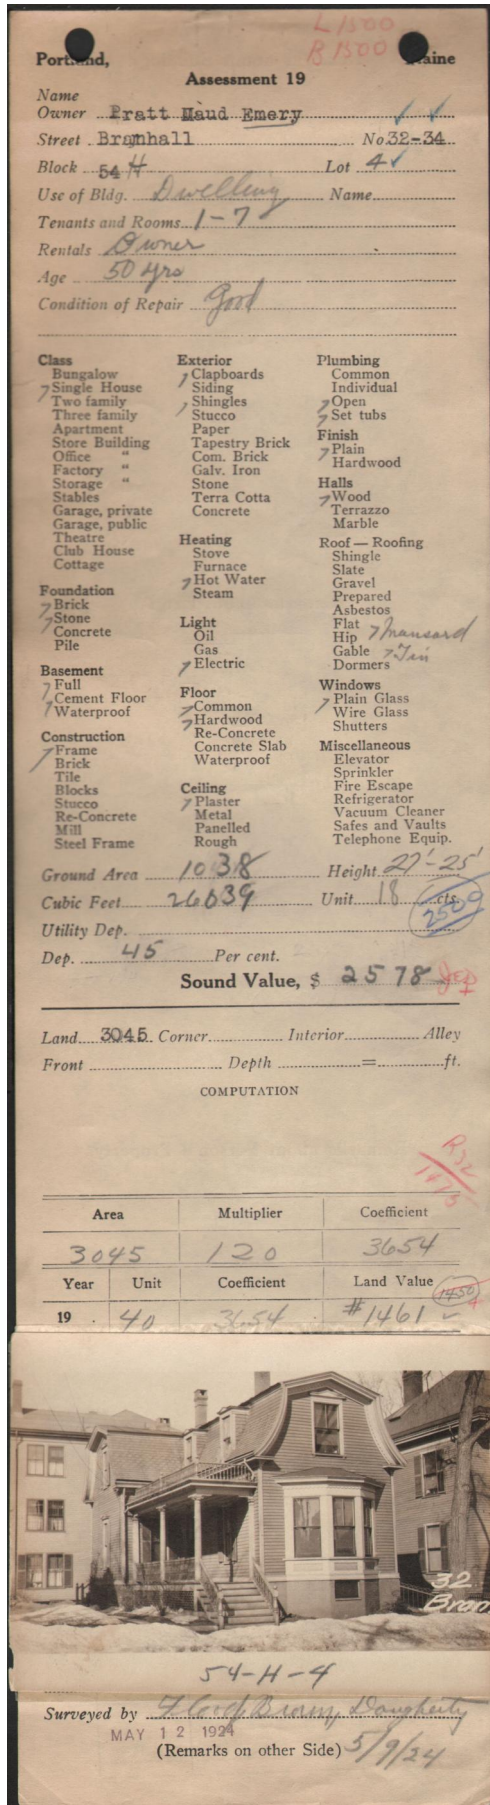 L 1500
B 1500
Portland, Maine
Assessment 19
Name
Owner Pratt Maud Emery
Street Bramhall No. 32-34
Block 54 H Lot 4
Use of Bldg. Dwelling Name
Tenants and Rooms 1-7
Rentals Owner
Age 50 yrs
Condition of Repair Good
Class
Bungalow
Single House
Two family
Three family
Apartment
Store Building
Office "
Factory "
Storage "
Stables
Garage, private
Garage, public
Theatre
Club House
Cottage
Foundation
Brick
Stone
Concrete
Pile
Basement
Full
Cement Floor
Waterproof
Construction
Frame
Brick
Tile
Blocks
Stucco
Re-Concrete
Mill
Steel Frame
Exterior
Clapboards
Siding
Shingles
Stucco
Paper
Tapestry Brick
Com. Brick
Galv. Iron
Stone
Terra Cotta
Concrete
Heating
Stove
Furnace
Hot Water
Steam
Light
Oil
Gas
Electric
Floor
Common
Hardwood
Re-Concrete
Concrete Slab
Waterproof
Ceiling
Plaster
Metal
Panelled
Rough
Plumbing
Common
Individual
Open
Set tubs
Finish
Plain
Hardwood
Halls
Wood
Terrazzo
Marble
Roof — Roofing
Shingle
Slate
Gravel
Prepared
Asbestos
Flat
Hip Mansard
Gable Tin
Dormers
Windows
Plain Glass
Wire Glass
Shutters
Miscellaneous
Elevator
Sprinkler
Fire Escape
Refrigerator
Vacuum Cleaner
Safes and Vaults
Telephone Equip.
Ground Area 1038 Height 27'-25'
Cubic Feet 26039 Unit 18 cts.
2500
Utility Dep.
Dep. 45 Per cent.
Sound Value, $ 2578
Land 3045 Corner Interior Alley
Front Depth = ft.
COMPUTATION
Area Multiplier Coefficient
3045 120 3654
Year Unit Coefficient Land Value 1450
19 40 3654 #1461
32
Bram
54-H-4
Surveyed by Dougherty
MAY 12 1924
(Remarks on other Side) 5/9/24